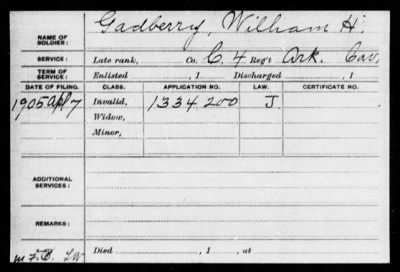 NAME OF SOLDIER: Gadberry, William H.
SERVICE: Late rank, Co. C. 4 Reg't Ark. Cav,
TERM OF SERVICE: Enlisted , 1 Discharged , 1
DATE OF FILING. CLASS. APPLICATION NO. LAW. CERTIFICATE NO.
1905 Apl 7 Invalid, 1334200 J.
Widow,
Minor,
ADDITIONAL SERVICES:
REMARKS:
Died , 1 , at